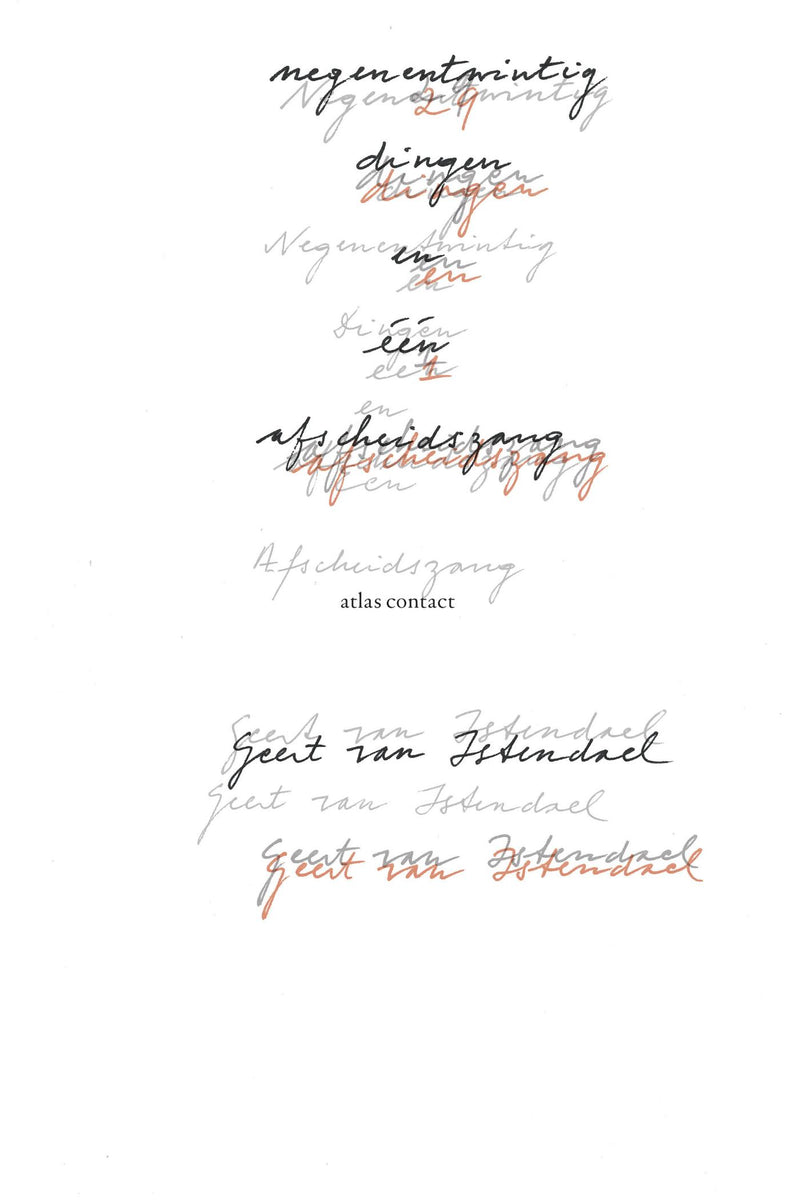 negenentwintig
Negenentwintig
29
dingen
dingen
dingen
Negenentwintig
en
en
en
en
Dingen
één
een
1
en
afscheidszang
afscheidszang
afscheidszang
en
Afscheidszang
atlas contact
Geert van Istendael
Geert van Istendael
Geert van Istendael
Geert van Istendael
Geert van Istendael